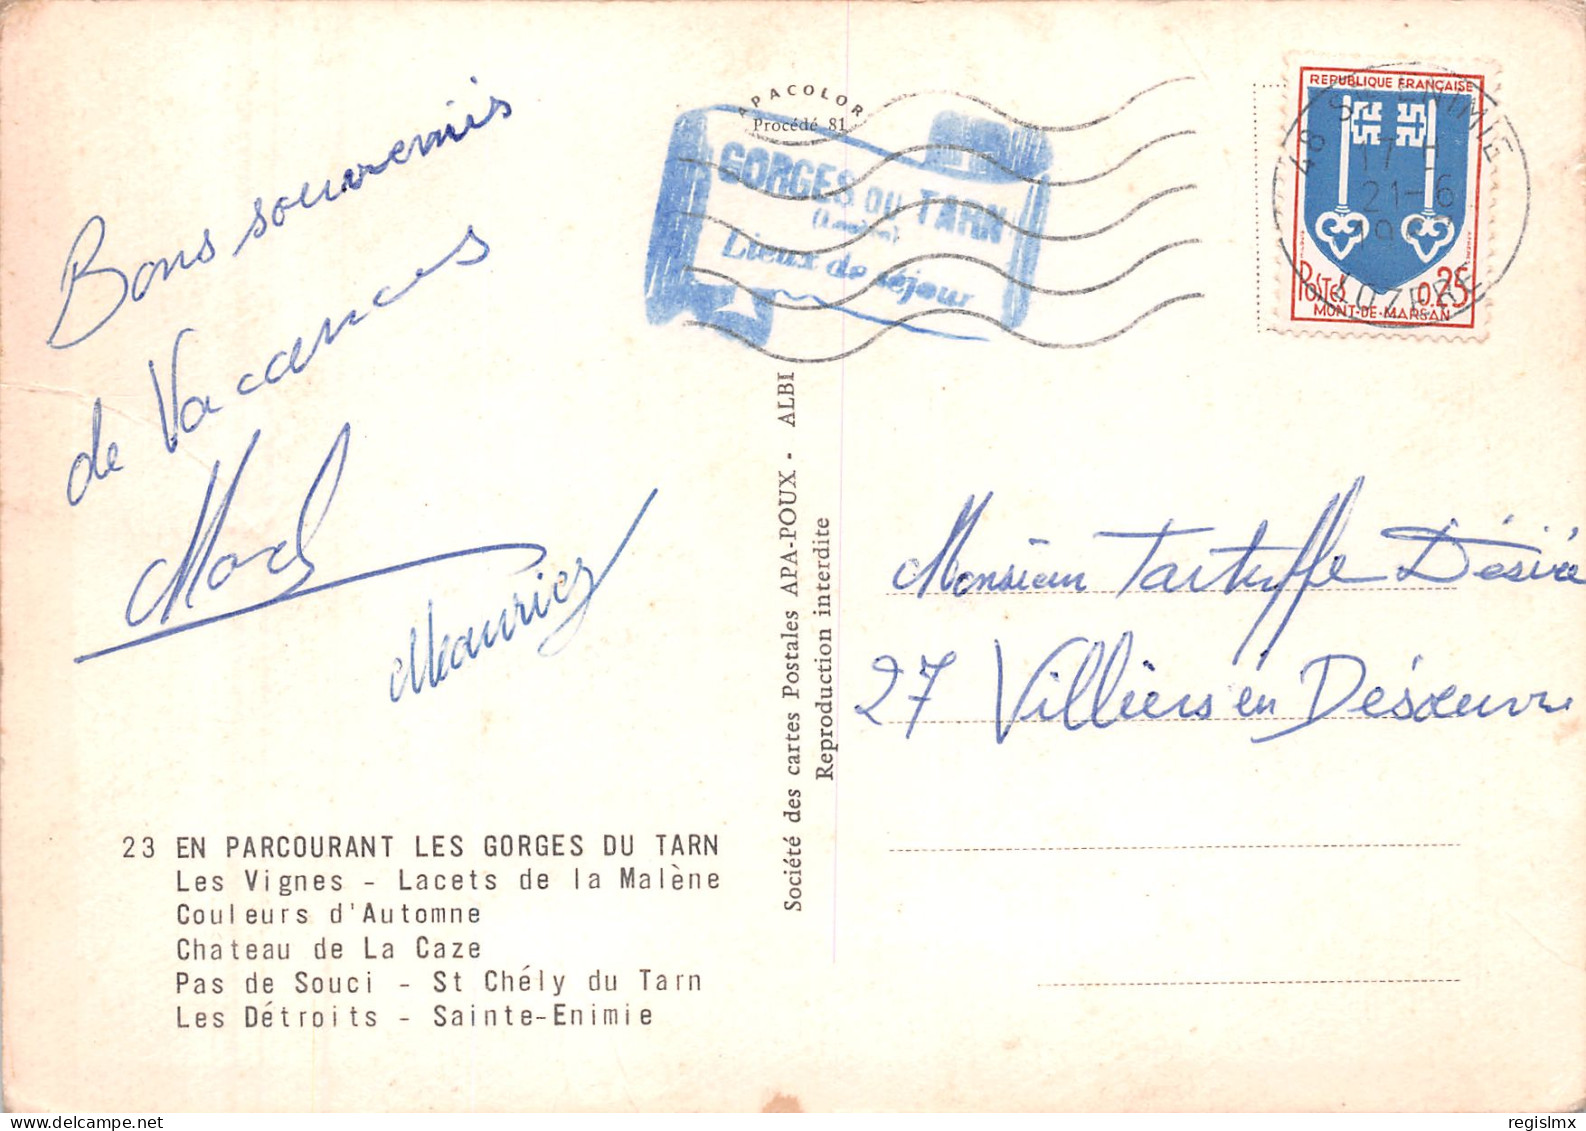 Bons souvenirs
de Vacances
Marcel
Mauricez
23 EN PARCOURANT LES GORGES DU TARN
Les Vignes - Lacets de la Malène
Couleurs d'Automne
Chateau de La Caze
Pas de Souci - St Chély du Tarn
Les Détroits - Sainte-Enimie
APACOLOR
Procédé 81
GORGES DU TARN
(Lozère)
Lieux de séjour
Société des cartes Postales APA-POUX - ALBI
Reproduction interdite
REPUBLIQUE FRANÇAISE
POSTES 0,25
MONT-DE-MARSAN
48 STE ENIMIE
17 H
21-6
LOZERE
Monsieur Tartuffe Désiré
27 Villiers en Désœuvre
regislmx